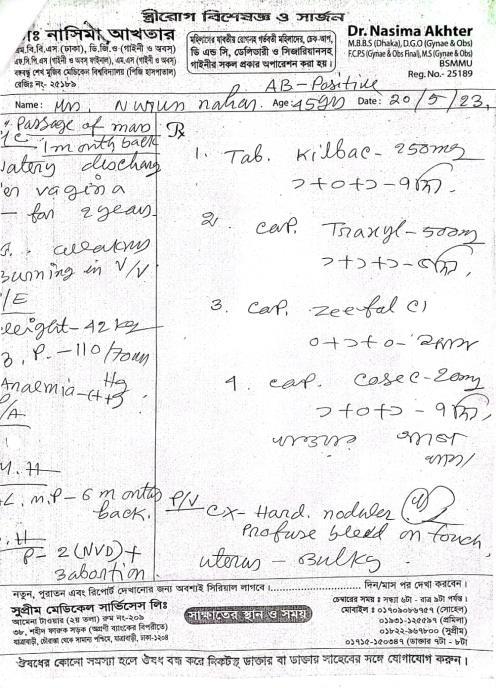 স্ত্রীরোগ বিশেষজ্ঞ ও সার্জন
ডাঃ নাসিমা আখতার
এম.বি.বি.এস (ঢাকা), ডি.জি.ও (গাইনী ও অবস)
এফ.সি.পি.এস (গাইনী ও অবস ফাইনাল), এম.এস (গাইনী ও অবস)
বঙ্গবন্ধু শেখ মুজিব মেডিকেল বিশ্ববিদ্যালয় (পিজি হাসপাতাল)
রেজিঃ নং- ২৫১৮৯
মহিলাদের যাবতীয় রোগসহ গর্ভবতী মহিলাদের, চেক-আপ,
ডি এন্ড সি, ডেলিভারী ও সিজারিয়ানসহ
গাইনীর সকল প্রকার অপারেশন করা হয়।
Dr. Nasima Akhter
M.B.B.S (Dhaka), D.G.O (Gynae & Obs)
F.C.P.S (Gynae & Obs Final), M.S (Gynae & Obs)
BSMMU
Reg. No.- 25189
AB-Positive
Name: Mrs. Nurun nahar. Age: 45yrs Date: 20/5/23,
Passage of mass
1 month back
watery discharge
vagina
for 2 years.
weakness
Burning in V/V
O/E
Weight- 42 kg
B.P.-110/70mm Hg
Anaemia-(++)
P/A
M.H
L.M.P-6 months back.
P= 2(NVD)+
3 abortion
℞
1. Tab. Kilbac- 250mg
১+০+১-৭দিন.
2. Cap. Traxyl-500mg
১+১+১-৫দিন.
3. Cap. Zeefol CI
০+১+০-২মাস
4. Cap. Cosec-20mg
১+০+১-৭দিন
খাওয়ার আগে
খাবেন
P/V
CX-Hard. nodular
Profuse bleed on touch,
uterus-Bulky.
নতুন, পুরাতন এবং রিপোর্ট দেখানোর জন্য অবশ্যই সিরিয়াল লাগবে। .......... দিন/মাস পর দেখা করবেন।
সুপ্রীম মেডিকেল সার্ভিসেস লিঃ
আমেনা টাওয়ার (২য় তলা) রুম নং-২০৯
৩৮, শহীদ ফারুক সড়ক (অগ্রণী ব্যাংকের বিপরীতে)
যাত্রাবাড়ী, চৌরাস্তা থেকে সামান্য পশ্চিমে, যাত্রাবাড়ী, ঢাকা-১২০৪
সাক্ষাতের স্থান ও সময়
চেম্বারের সময় : সন্ধ্যা ৬টা - রাত্র ৯টা পর্যন্ত।
মোবাইল : ০১৭৯০৮৬৭৫৭ (সোহেল)
০১৯৩১-১২৫৫৯৭ (প্রমিলা)
০১৮২২-৯৬৭৮০০ (সুপ্রীম)
০১৭১৫-১৫০৩৪৭ (ডাক্তার ৭টা - ৮টা)
ঔষধের কোনো সমস্যা হলে ঔষধ বন্ধ করে নিকটস্থ ডাক্তার বা ডাক্তার সাহেবের সঙ্গে যোগাযোগ করুন।